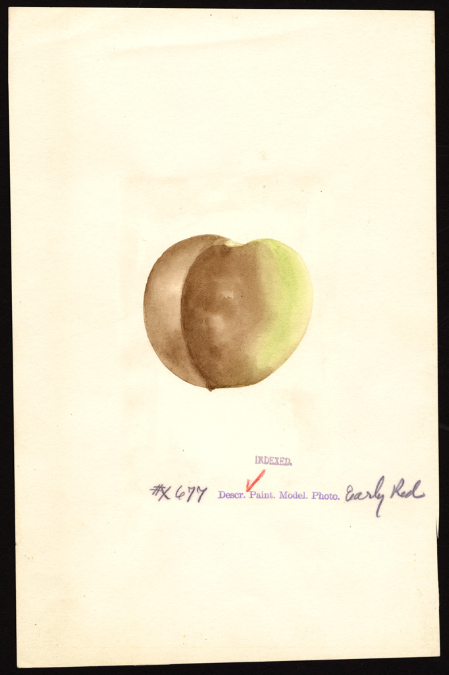 INDEXED.
#X677 Descr. Paint. Model. Photo. Early Red